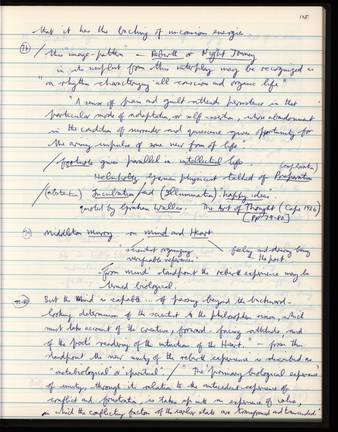 115
that it has the backing of unconscious energies.
76 / this "image-pattern" – Rebirth or Night Journey
in its simplest form this interplay may be recognized as
"a rhythm characterizing all conscious and organic life"
"A sense of pain and guilt attends persistence in that
particular mode of adaptation, or self-assertion, whose abandonment
in the condition of surrender and quiescence gives opportunity for
the arising impulse of some new form of life".
/ gives parallel in intellectual life (
Helmholtz German physicist talked of Preparation
/ (abstention) Incubation / and (Illumination) "happy ideas"
quoted by Graham Wallas The Art of Thought (Cape 1926)
[pp 79-80]
Middleton Murry on mind and Heart
"
verifiable experience" feeling and desiring being
the poet
from 'mind' standpoint the rebirth experience may be
termed biological.
But the Mind is capable ... of passing beyond the backward-
looking determinism of the scientist to the philosophic reason, which
must take account of the creative, forward-facing attitude, and
of the poet's rendering of the intuition of the heart." – from this
standpoint the new unity of the rebirth experience is described as
"metabiological or spiritual" / The "primary biological experience
of unity, through its relation to the antecedent experience of
conflict and frustration, is taken up into an experience of value,
in which the conflicting factors of the earlier state are transformed and transcended"